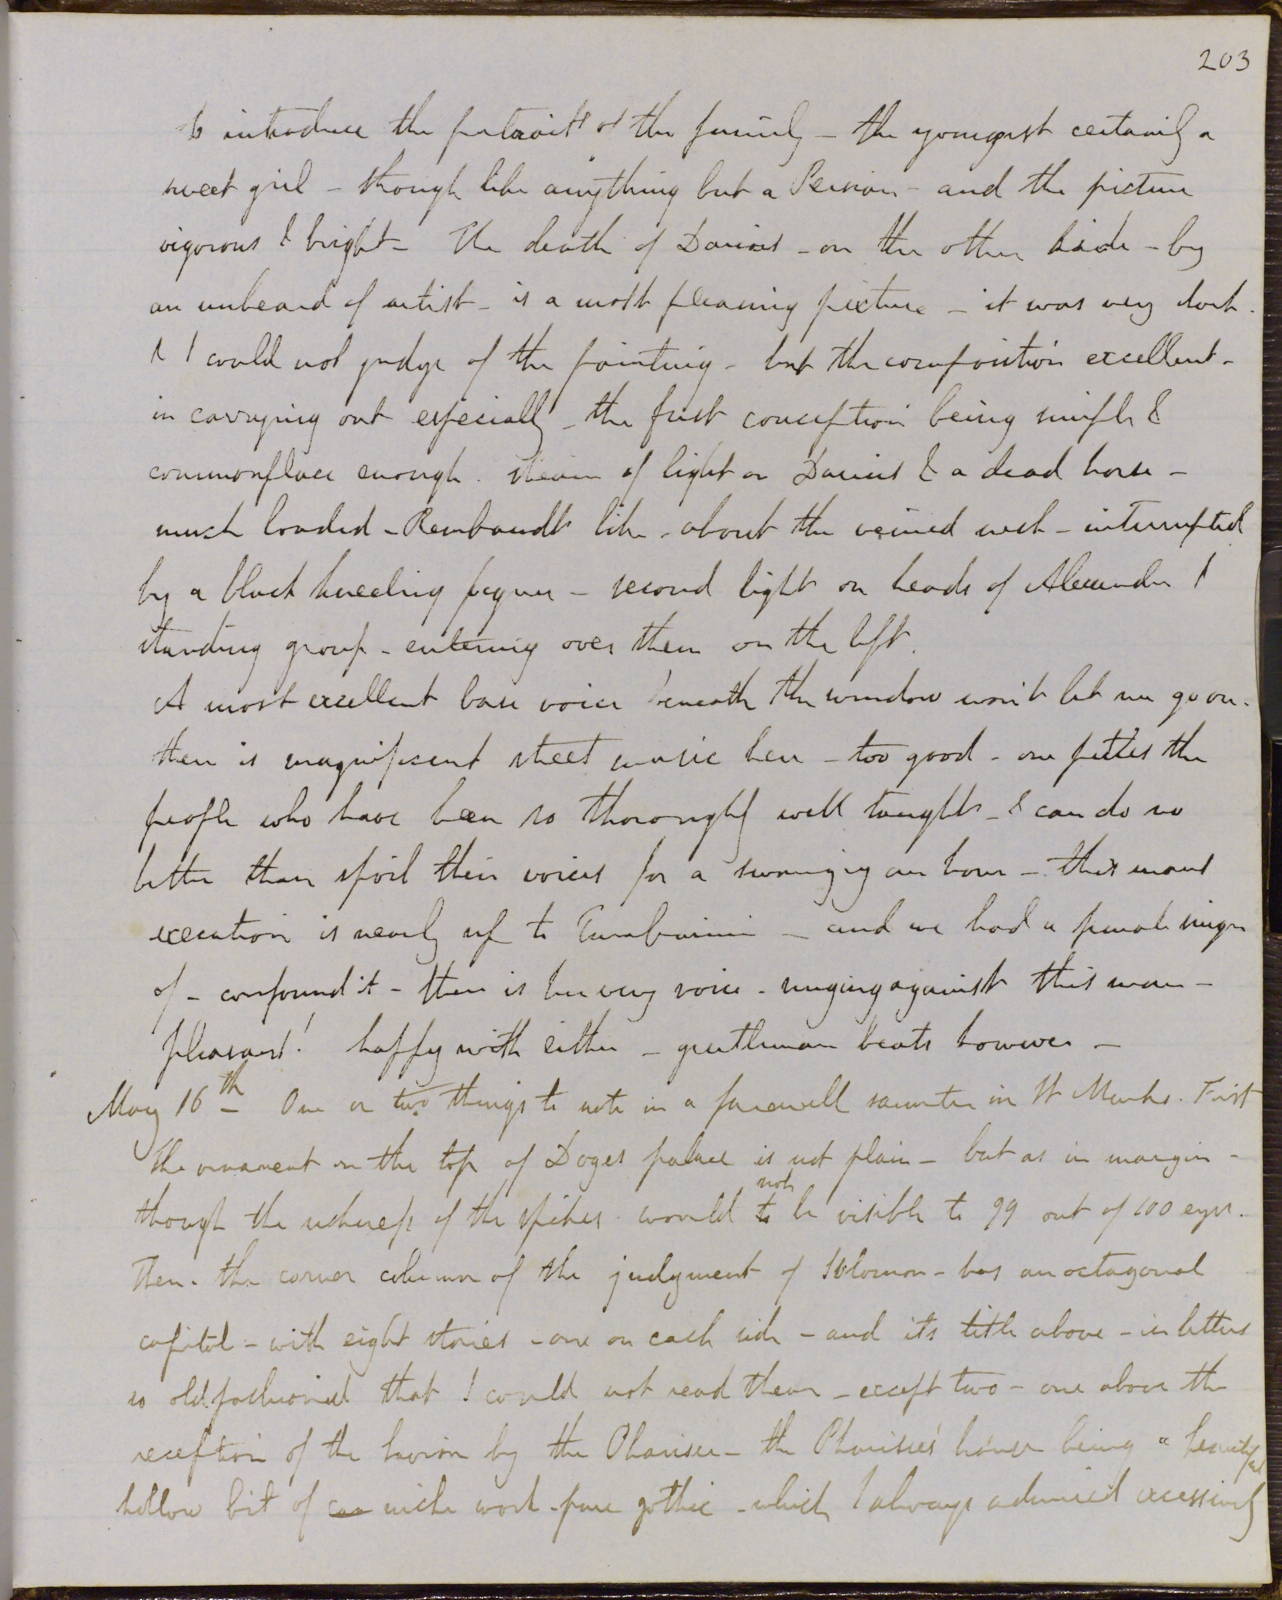 203
to introduce the portraits of the family – the youngest certainly a
sweet girl – though like anything but a Persian – and the picture
vigorous & bright – The death of Darius – on the other side – by
an unheard of artist – is a most pleasing picture – it was very dark.
& I could not judge of the painting – but the composition excellent –
in carrying out especially – the first conception being simple &
commonplace enough. stream of light on Darius & a dead horse –
much loaded – Rembrandt like – about the veined neck – interrupted
by a black kneeling figure – second light on heads of Alexander &
standing group – entering over them on the left.
A most excellent base voice beneath the window won't let me go on.
there is magnificent street music here – too good – one pities the
people who have been so thoroughly well taught – & can do no
better than spoil their voices for a swanzig an hour – this mans
execution is nearly up to Tamburini – and we had a female singer
of – confound it – there is her very voice – singing against this man –
pleasant! happy with either – gentleman beats however –
May 16th – One or two things to note in a farewell saunter in St Marks. First
the ornament on the top of Doges palace is not plain – but as in margin –
though the richness of the spikes would not to be visible to 99 out of 100 eyes.
Then. the corner column of the judgment of Solomon – has an octagonal
capital – with eight stories – one on each side – and its title above – in letters
so oldfashioned that I could not read them – except two – one above the
reception of the by the Pharisee – the Pharisee's house being a beautiful
hollow bit of niche work – pure gothic – which I always admired excessively